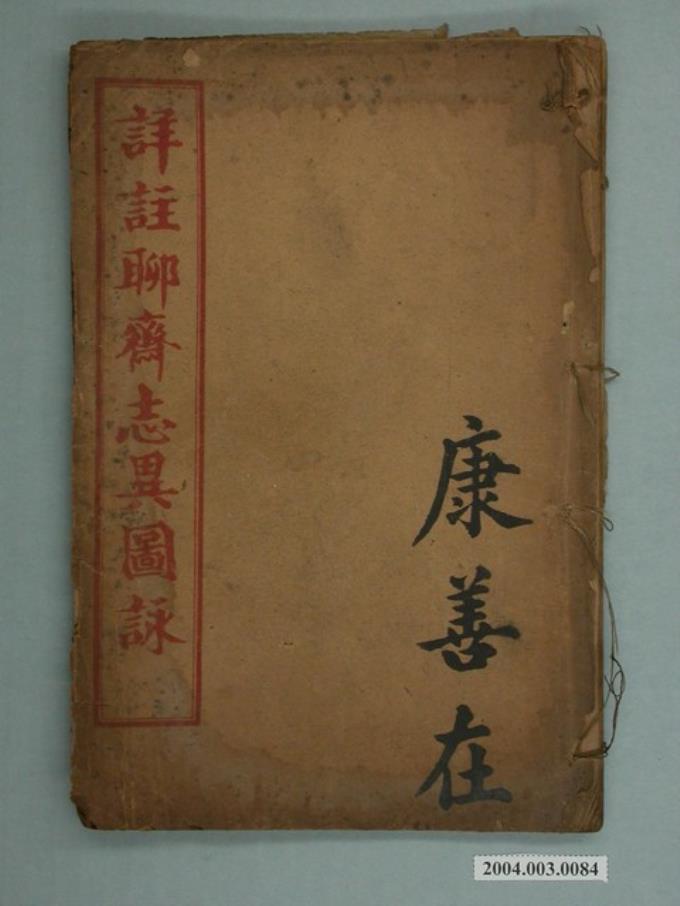 詳註聊齋志異圖詠
康善在
2004.003.0084